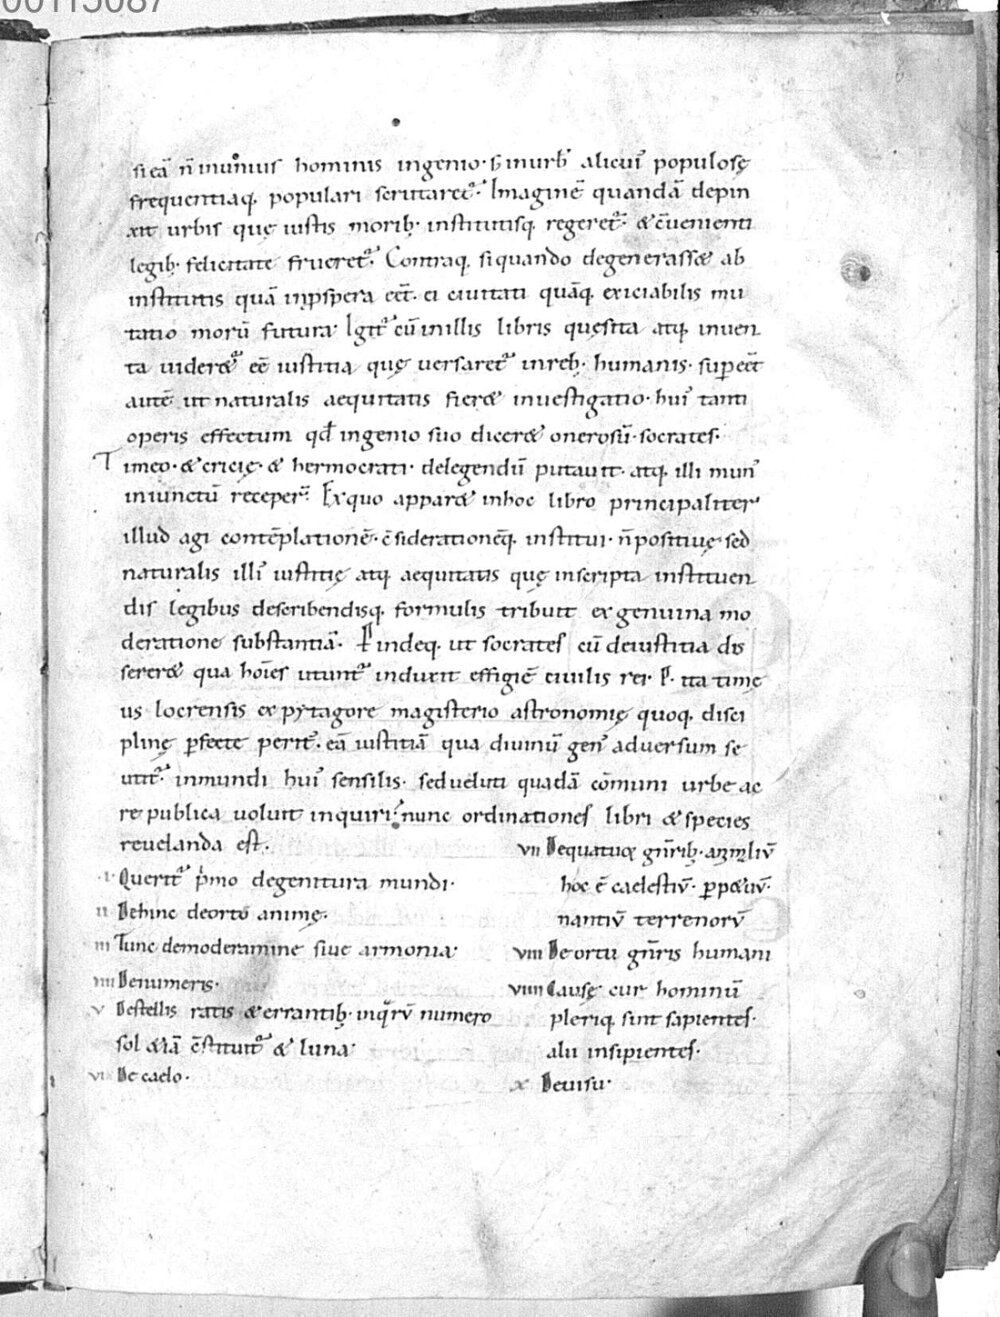 00115087
si eā n̄ in unius hominis ingenio· s; in urb̄ alicui᾽ populosę
frequentiaq; popular scrutaret᷑· Imaginē quandā depin
xit urbis quę iustis morib; institutisq; regeret᷑· & c̄uenienti
legib; felicitate frueret᷑· Contraq; si quando degenerass& ab
institutis quā inp̱spera eēt· ei ciuitati quāq; exiciabilis mu
tatio morū futura· Igit᷑ cū in illis libris quęsita atq; inuen
ta uider&᷑ eē iustitia quę uersaret᷑ in reb; humanis· sup̱eēt
autē ut naturalis aequitatis fier& inuestigatio· hui᾽ tanti
operis effectum qđ ingenio suo dicer& onerosū· socrates·
Timeo· & cricię· & hermocrati· delegendū putauit· atq; illi mun᾽
iniunctū receper̄· Ex quo appar& in hoc libro principaliter
illud agi contēplationē· c̄siderationēq; institui· n̄ positiuę sed
naturalis illi᾽ iustitię atq; aequitatis quę inscripta instituen
dis legibus describendisq; formulis tribuit ex genuina mo
deratione substantiā· P̱indeq; ut socrates cū de iustitia dis
serer& qua hoīes utunt᷑ induxit effigiē ciuilis rei· P̱· ita timę
us locrensis ex pytagorę magisterio astronomię quoq; disci
plinę p̱fecte perit᾽· eā iustitiā qua diuinū gen᾽ adversum se
utit᷑· in mundi hui᾽ sensilis· sed ueluti quadā cōmuni urbe ac
re publica uoluit inquiri· nunc ordinationes libri & species
reuelanda est·
·i· Querit᷑ p̓mo de genitura mundi·
ii Dehinc de ortū animę·
iii Tunc de moderamine siue armonia·
iiii De numeris·
v De stellis ratis & errantib; in q᷑rū numero
sol &iā c̄stituit᷑ & luna·
vi De caelo·
vii De quatuor gn̄rib; animliū
hoc ē caelestiū· p̱p&uū·
nantiū terrenorū
viii De ortu gn̄ris humani
viiii Causę cur hominū
pleriq; sint sapientes·
alii insipientes·
x De uisu·